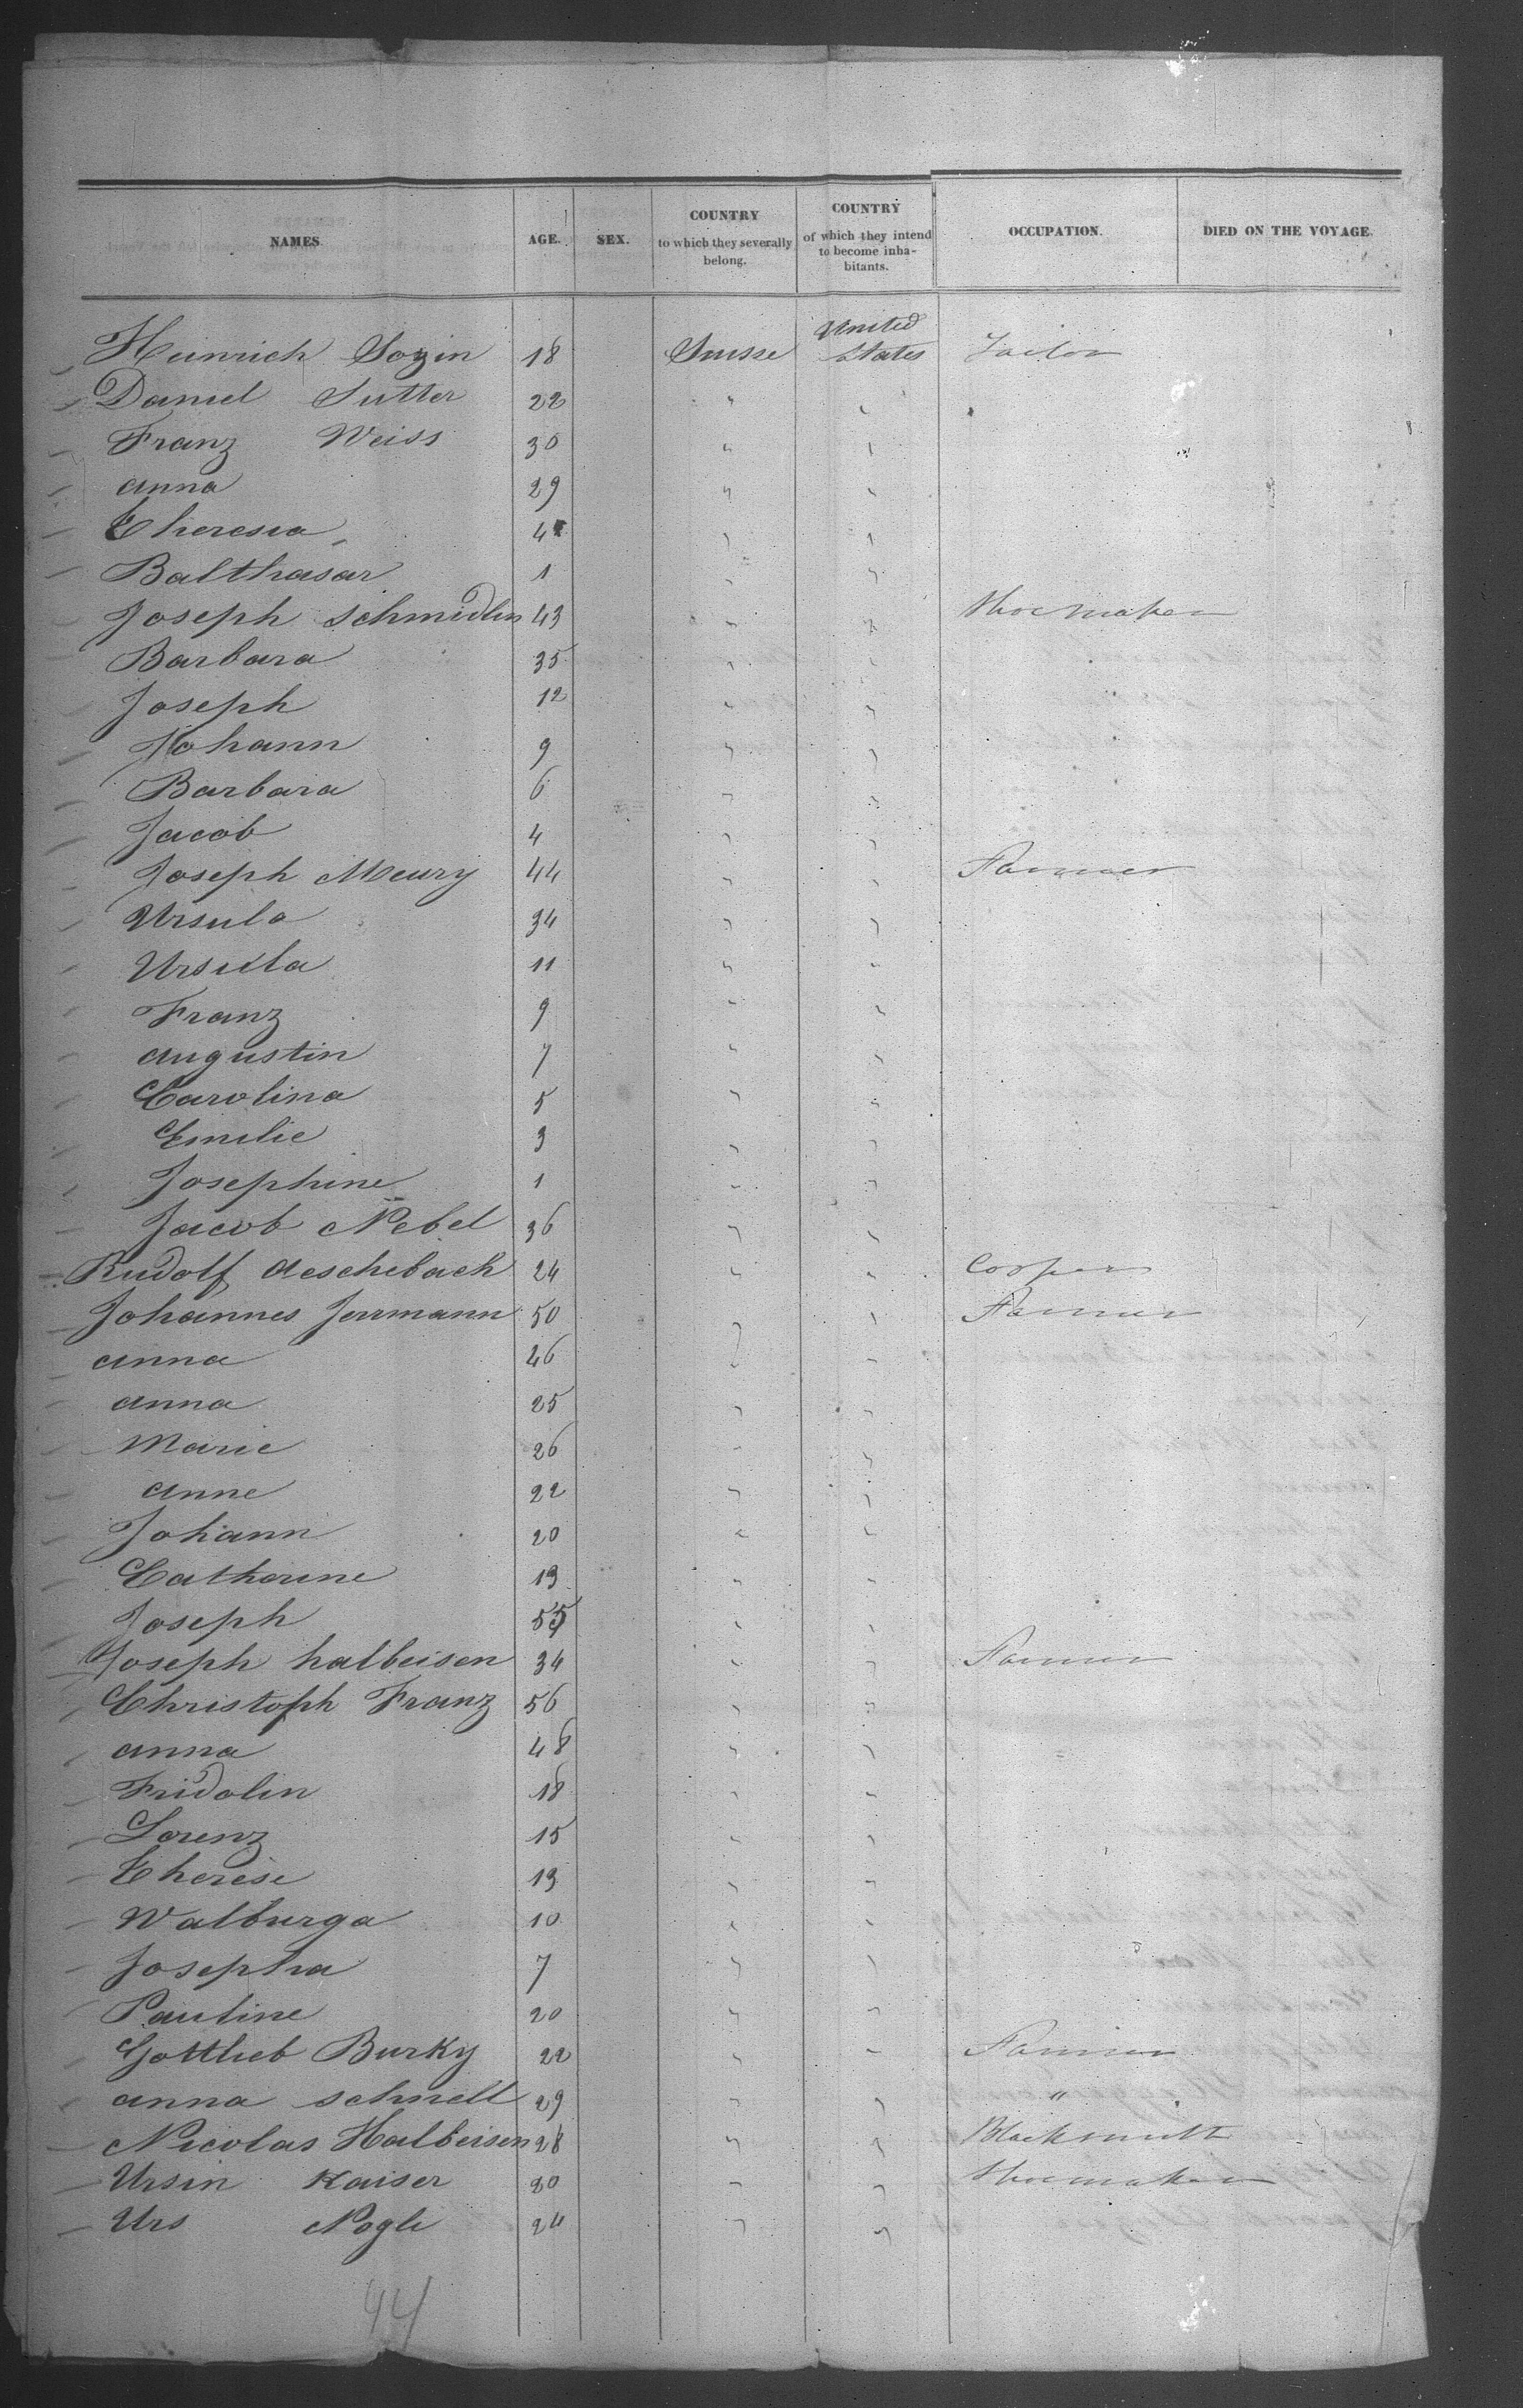 NAMES. AGE. SEX. COUNTRY to which they severally belong. COUNTRY of which they intend to become inhabitants. OCCUPATION. DIED ON THE VOYAGE.
Heinrich Sozin 18 Suisse United States Tailor
Daniel Sutter 22 " "
Franz Weiss 30 " "
anna 29 " "
Theresia 4 " "
Balthasar 1 " "
Joseph Schmidlin 43 " " Shoemaker
Barbara 35 " "
Joseph 12 " "
Johann 9 " "
Barbara 6 " "
Jacob 4 " "
Joseph Meury 44 " " Farmer
Ursula 34 " "
Ursula 11 " "
Franz 9 " "
augustin 7 " "
Carolina 5 " "
Emilie 3 " "
Josephine 1 " "
Jacob Nebel 36 " "
Rudolf Aeschebach 24 " " Cooper
Johannes Jerrmann 50 " " Farmer
anna 46 " "
anna 25 " "
Marie 26 " "
anne 22 " "
Johann 20 " "
Catherine 13 " "
Joseph 55 " "
Joseph halbeisen 34 " " Farmer
Christoph Franz 56 " "
anna 48 " "
Fridolin 18 " "
Lorenz 15 " "
Therese 13 " "
Walburga 10 " "
Josepha 7 " "
Pauline 20 " "
Gottlieb Burky 22 " " Farmer
anna schnell 29 " " "
Nicolas Halbeisen 28 " " Blacksmith
Ursin Kaiser 20 " " Shoemaker
Urs Nogli 24 " "
44